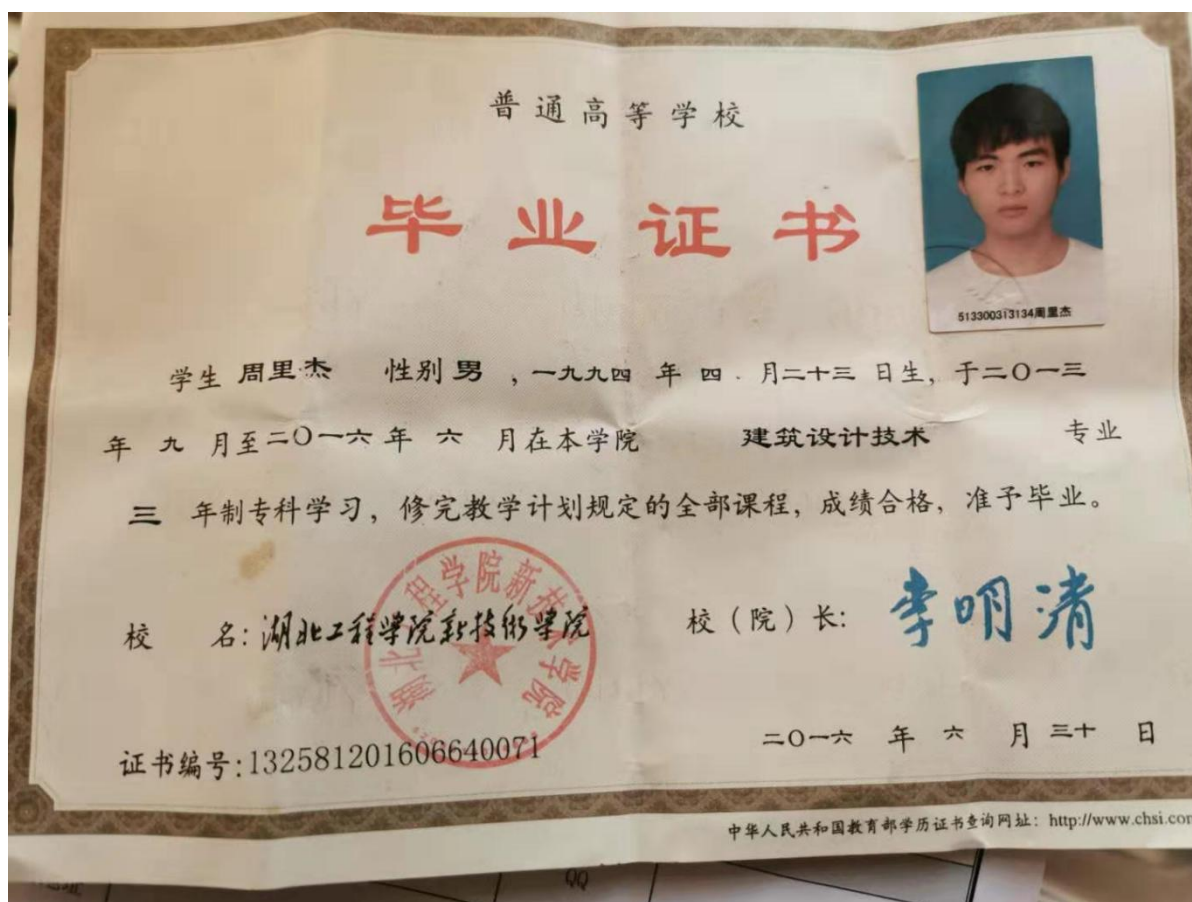 普通高等学校
毕业证书
513300313134周里杰
学生 周里杰 性别 男 ,一九九四 年 四 月二十三 日生, 于二〇一三
年 九 月至二〇一六 年 六 月在本学院 建筑设计技术 专业
三 年制专科学习, 修完教学计划规定的全部课程, 成绩合格, 准予毕业。
湖北工程学院新技术学院
校 名: 湖北工程学院新技術学院 校(院)长: 李明清
二〇一六 年 六 月 三十 日
证书编号:132581201606640071
中华人民共和国教育部学历证书查询网址: http://www.chsi.com
QQ